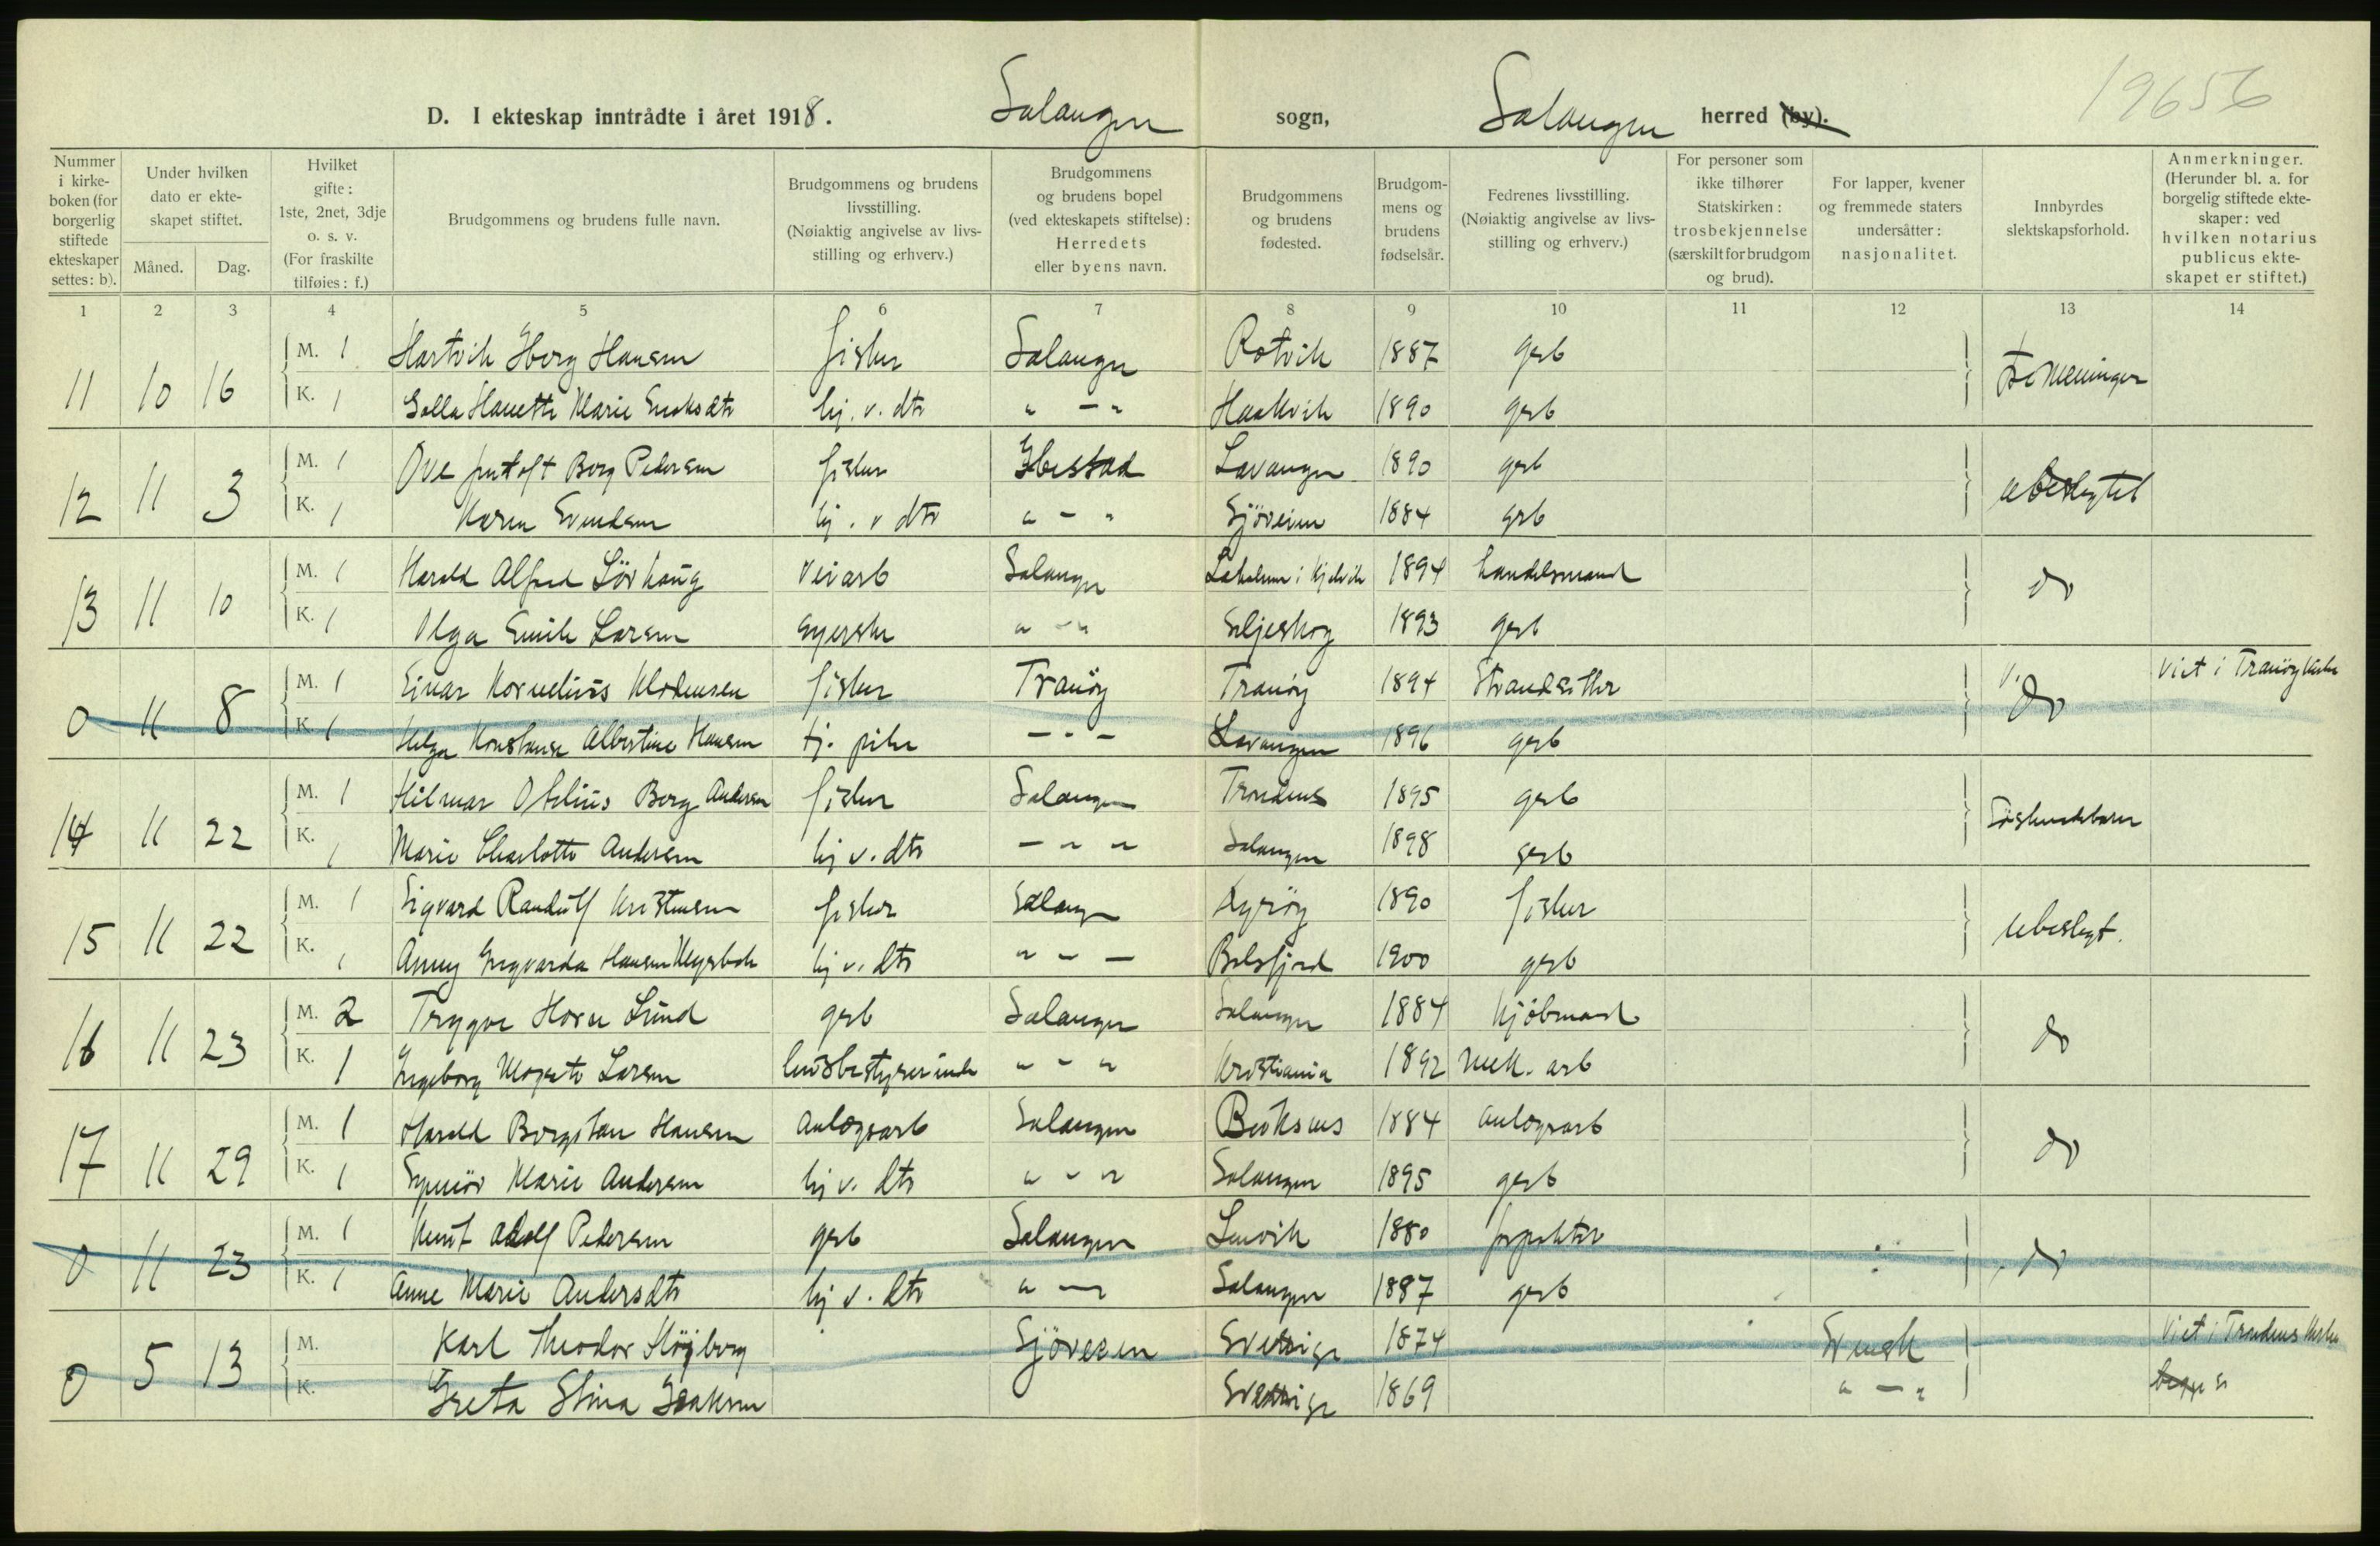 19656
D. I ekteskap inntrådte i året 1918. Salangen sogn, Salangen herred (by).
Nummer i kirke-boken (for borgerlig stiftede ekteskaper settes: b).
Under hvilken dato er ekte-skapet stiftet.
Måned. Dag.
Hvilket gifte: 1ste, 2net, 3dje o. s. v. (For fraskilte tilføies: f.)
Brudgommens og brudens fulle navn.
Brudgommens og brudens livsstilling. (Nøiaktig angivelse av livs-stilling og erhverv.)
Brudgommens og brudens bopel (ved ekteskapets stiftelse): Herredets eller byens navn.
Brudgommens og brudens fødested.
Brudgom-mens og brudens fødselsår.
Fedrenes livsstilling. (Nøiaktig angivelse av livs-stilling og erhverv.)
For personer som ikke tilhører Statskirken: trosbekjennelse (særskilt for brudgom og brud).
For lapper, kvener og fremmede staters undersåtter: nasjonalitet.
Innbyrdes slektskapsforhold.
Anmerkninger. (Herunder bl. a. for borgelig stiftede ekte-skaper: ved hvilken notarius publicus ekte-skapet er stiftet.)
1 2 3 4 5 6 7 8 9 10 11 12 13 14
11 10 16 M. 1 Hartvik Hansen fisker Salangen Rotvik 1887 gerb
K. 1 Hanette Marie hj. v. dtr " - " 1890 gerb
12 11 3 M. 1 Ove Berg Pedersen fisker Ibestad Lavangen 1890 gerb ubeslegtet
K. 1 Karen Svendsen hj. v dtr " - " Sjöveien 1884 gerb
13 11 10 M. 1 Harald Alfred Lövhaug Veiarb Salangen 1894 handelsmand do
K. 1 Olga Emile Larsen syerske " - " Seljeskog 1893 gerb
0 11 8 M. 1 Einar Kornelius Klodiusen fisker Tranöy Tranöy 1894 Strandsitter do Viet i Tranöy kirke
K. 1 Helga Konstanse Albertine Hansen tj. pike - - - Lavangen 1896 gerb
14 11 22 M. 1 Hilmar Otelius Berg Andersen fisker Salangen Trondenes 1895 gerb Söskendebarn
K. 1 Marie Charlotte Andersen hj v. dtr - " " Salangen 1898 gerb
15 11 22 M. 1 Sigvard Randulf Kristensen fisker Salangen 1890 fisker ubeslegt.
K. 1 Anny Ingvarda Hansen hj v. dtr " - - Balsfjord 1900 gerb
16 11 23 M. 2 Trygve Horn Lund gerb Salangen Salangen 1884 Kjöbmand do
K. 1 Ingeborg Margrete Larsen husbestyrerinde " - " Kristiania 1892 mek. arb
17 11 29 M. 1 Harald Bergitan Hansen Anlægsarb Salangen Buksnes 1884 anlægsarb do
K. 1 Synnöv Marie Andersen hj v. dtr " - " Salangen 1895 gerb
0 11 23 M. 1 Knut Adolf Pedersen gerb Salangen Lenvik 1880 forpakter do
K. 1 Anne Marie Andersdtr hj v. dtr " - " Salangen 1887 gerb
0 5 13 M. Karl Theodor Höjberg Sjöveien Sverrige 1874 Svensk Viet i Trondenes kirke
K. Greta Stina Isaksen Sverrige 1869 " - "